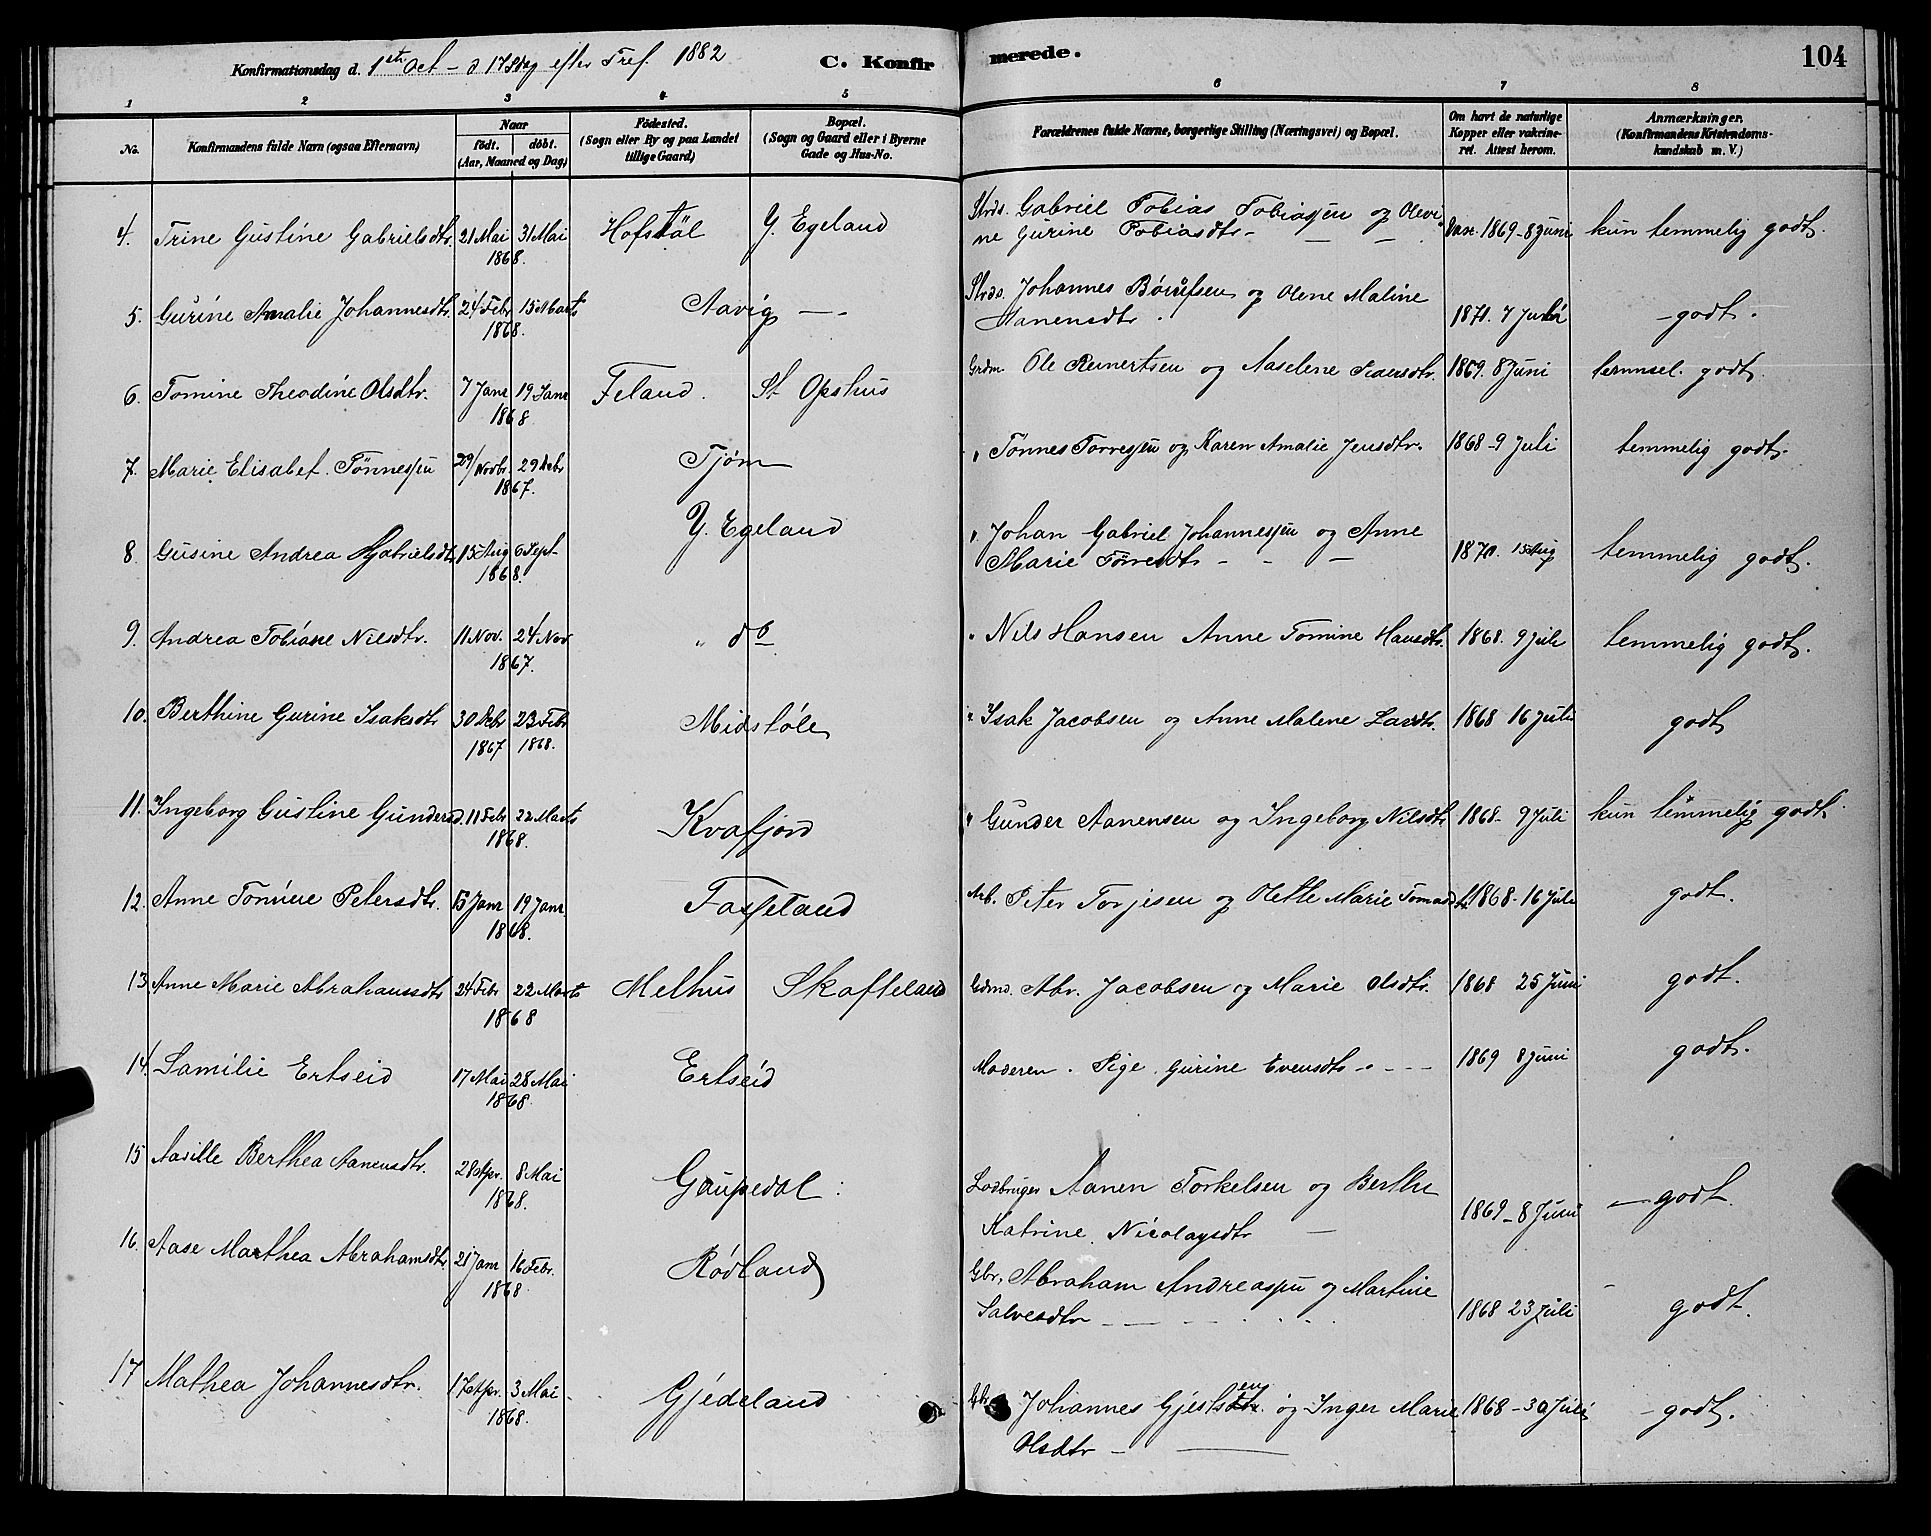 Konfirmationsdag d. 1ste Oct – d 17 Sdag efter Tref. 1882
C. Konfirmerede.
104
1 2 3 4 5 6 7 8
No.
Konfirmandens fulde Navn (ogsaa Efternavn)
Naar
födt. döbt.
(Aar, Maaned og Dag)
Födested.
(Sogn eller By og paa Landet
tillige Gaard)
Bopæl.
(Sogn og Gaard eller i Byerne
Gade og Hus-No.
Forældrenes fulde Navne, borgerlige Stilling (Næringsvei) og Bopæl.
Om havt de naturlige
Kopper eller vakcine-
ret. Attest herom.
Anmærkninger.
(Konfirmandens Kristendoms-
kundskab m. V.)
4. Trine Gustine Gabrielsdtr. 21 Mai 31 Mai Hofstöl Y. Egeland Strds. Gabriel Tobias Tobiassen og Olevi
1868. ne Gurine Tobiasdtr – – – 1869 – 8 Juni kun temmelig godt.
5. Gurine Amalie Johannesdtr. 24 Febr 15 Marts Aavig — Strds. Johannes Börufsen og Olene Maline
1868. Aanensdtr. 1871. 7 Juli – godt.
6. Tomine Theodine Olsdtr. 7 Janr 19 Janr Feland. St Opshus Grdm. Ole Reinertsen og Aaselene Pedersdtr. 1869. 8 Juni temmel. godt
1868
7. Marie Elisabet Tönnessen 29/ Novbr 29 Debr Tjöm " Tönnes Torresen og Karen Amalie Jensdtr. 1868 – 9 Juli temmelig godt.
1867.
8. Gusine Andrea Gabrielsdtr 15 Aug 6 Sept Y. Egeland " Johan Gabriel Johannessen og Anne
1868. Marie Torresdtr – – – 1870. 15 Aug temmelig godt.
9. Andrea Tobiane Nilsdtr. 11 Nov. 24 Nov " do " Nils Hansen Anne Tomine Hansdtr. 1868. 9 Juli temmelig godt.
1867.
10. Berthine Gurine Isaksdtr 30 Debr 23 Febr Midstöle " Isak Jacobsen og Anne Malene Larsdtr. 1868 16 Juli godt
1867 1868.
11. Ingeborg Gustine Gundersd. 11 Febr 22 Marts Kvafjord " Gunder Aanensen og Ingeborg Nilsdtr 1868 – 9 Juli kun temmelig godt.
1868.
12. Anne Tomine Petersdtr. 5 Janr 19 Janr Fosseland Arb. Peter Torjesen og Olette Marie Tomasdtr 1868 – 16 Juli godt.
1868.
13. Anne Marie Abrahamsdtr 24 Febr 22 Marts Melhus Skofteland Grdmd. Abr. Jacobsen og Marie Olsdtr. 1868 25 Juni godt.
1868
14. Samilie Ertseid 17 Mai 28 Mai Ertseid Moderen. Pige Gurine Evensdtr – – – 1869 8 Juni godt.
1868.
15 Aasille Berthea Aanensdtr. 28 Apr. 8 Mai Gaupedal: Lodbruger Aanen Torkelsen og Berthe
1868. Katrine Nicolaysdtr – 1869 – 8 Juni – godt
16. Aase Marthea Abrahamsdtr. 21 Janr 16 Febr. Rödland Gbr. Abraham Andreassen og Martine
1868. Salvesdtr – – – – 1868 23 Juli – godt.
17 Mathea Johannesdtr. 17 Apr. 3 Mai – Gjedeland Gbr. Johannes Gjertsen og Inger Marie 1868 – 30 Juli – godt.
1868. Olsdtr –